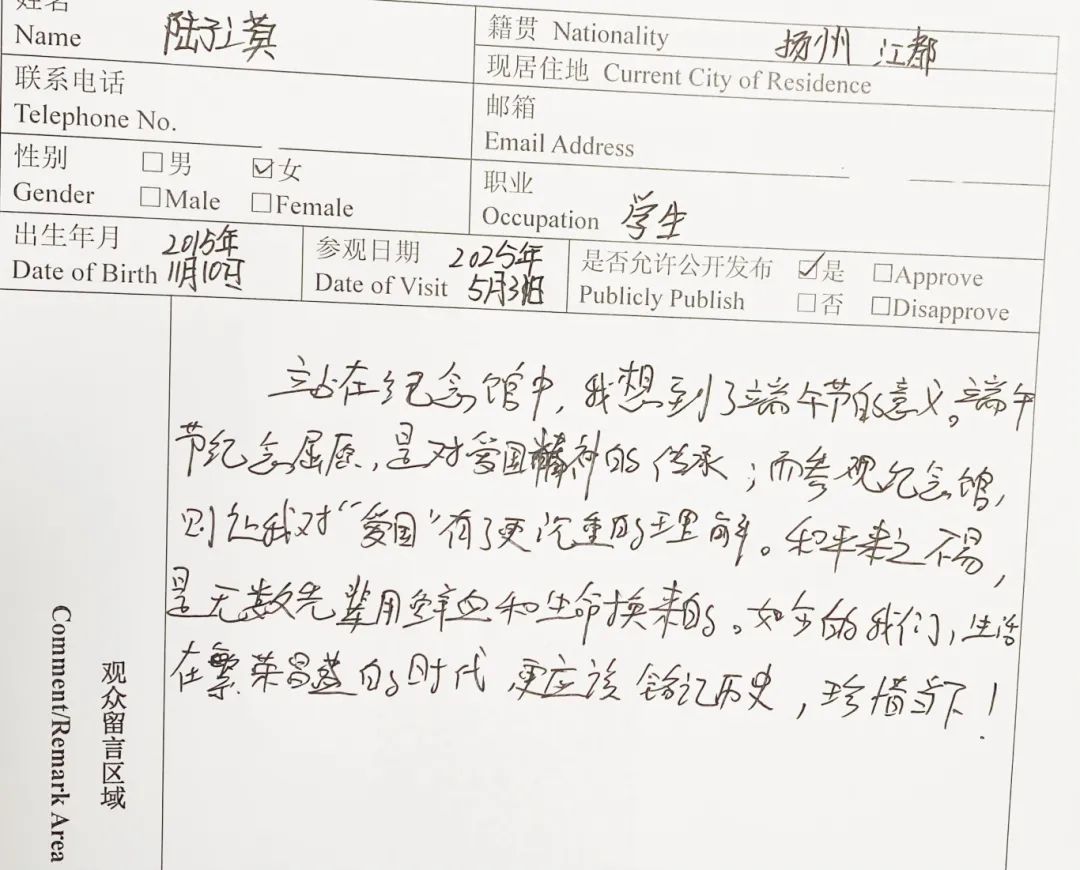 姓名
Name 陆子萁
籍贯 Nationality 扬州 江都
现居住地 Current City of Residence
联系电话
Telephone No.
邮箱
Email Address
性别 □男 ☑女
Gender □Male □Female
职业
Occupation 学生
出生年月 2015年
Date of Birth 11月10日
参观日期 2025年
Date of Visit 5月31日
是否允许公开发布 ☑是 □Approve
Publicly Publish □否 □Disapprove
观众留言区域
Comment/Remark Area
站在纪念馆中，我想到了端午节的意义。端午
节纪念屈原，是对爱国精神的传承；而参观纪念馆，
则让我对“爱国”有了更沉重的理解。和平来之不易，
是无数先辈用鲜血和生命换来的。如今的我们，生活
在繁荣昌盛的时代 更应该铭记历史，珍惜当下！